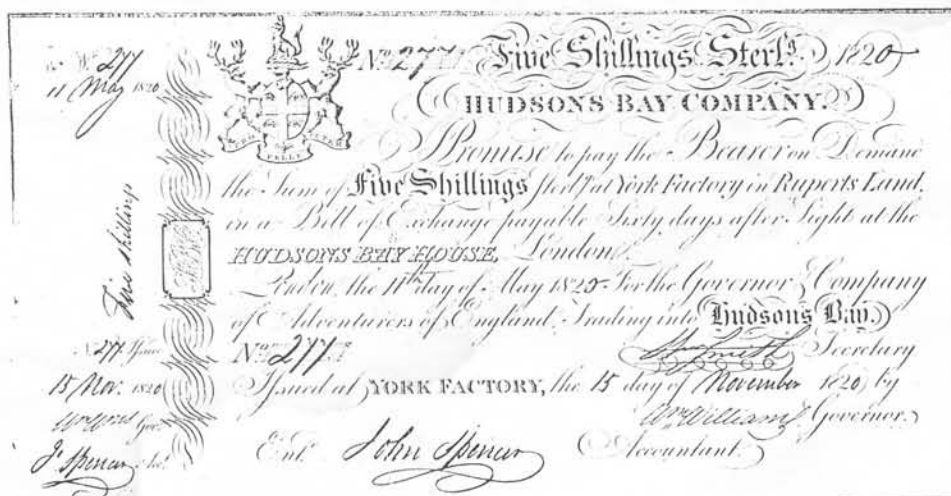 No 277
11 May 1820
Five shillings
N. 277 Issued
15 Nov. 1820
Wm Wms Gov.
J. Spencer Act.
H.B.C.
PRO PELLE CUTEM
No. 277 Five Shillings Sterlg. 1820
HUDSONS BAY COMPANY.
Promise to pay the Bearer on Demand
the Sum of Five Shillings Sterlg at York Factory in Ruperts Land,
in a Bill of Exchange payable Sixty days after Sight at the
HUDSONS BAY HOUSE, London.
London, the 11th day of May 1820 For the Governor & Company
of Adventurers of England Trading into Hudsons Bay.
No. 277
Wm Smith Secretary
Issued at YORK FACTORY, the 15 day of November 1820, by
Wm Williams Governor.
Entd. John Spencer Accountant.